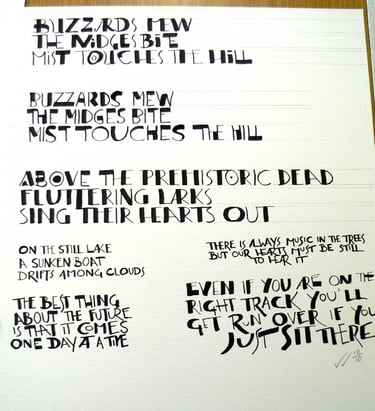 BUZZARDS MEW
THE MIDGES BITE
MIST TOUCHES THE HILL
BUZZARDS MEW
THE MIDGES BITE
MIST TOUCHES THE HILL
ABOVE THE PREHISTORIC DEAD
FLUTTERING LARKS
SING THEIR HEARTS OUT
ON THE STILL LAKE
A SUNKEN BOAT
DRIFTS AMONG CLOUDS
THERE IS ALWAYS MUSIC IN THE TREES
BUT OUR HEARTS MUST BE STILL
TO HEAR IT
THE BEST THING
ABOUT THE FUTURE
IS THAT IT COMES
ONE DAY AT A TIME
EVEN IF YOU ARE ON THE
RIGHT TRACK YOU'LL
GET RUN OVER IF YOU
JUST SIT THERE